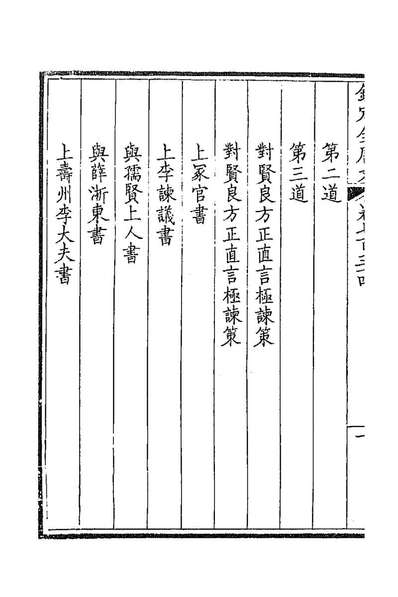 第二道
第三道
對賢良方正直言極諫策
對賢良方正直言極諫策
上冢官書
上李諫議書
與孺賢上人書
與薛浙東書
上壽州李大夫書